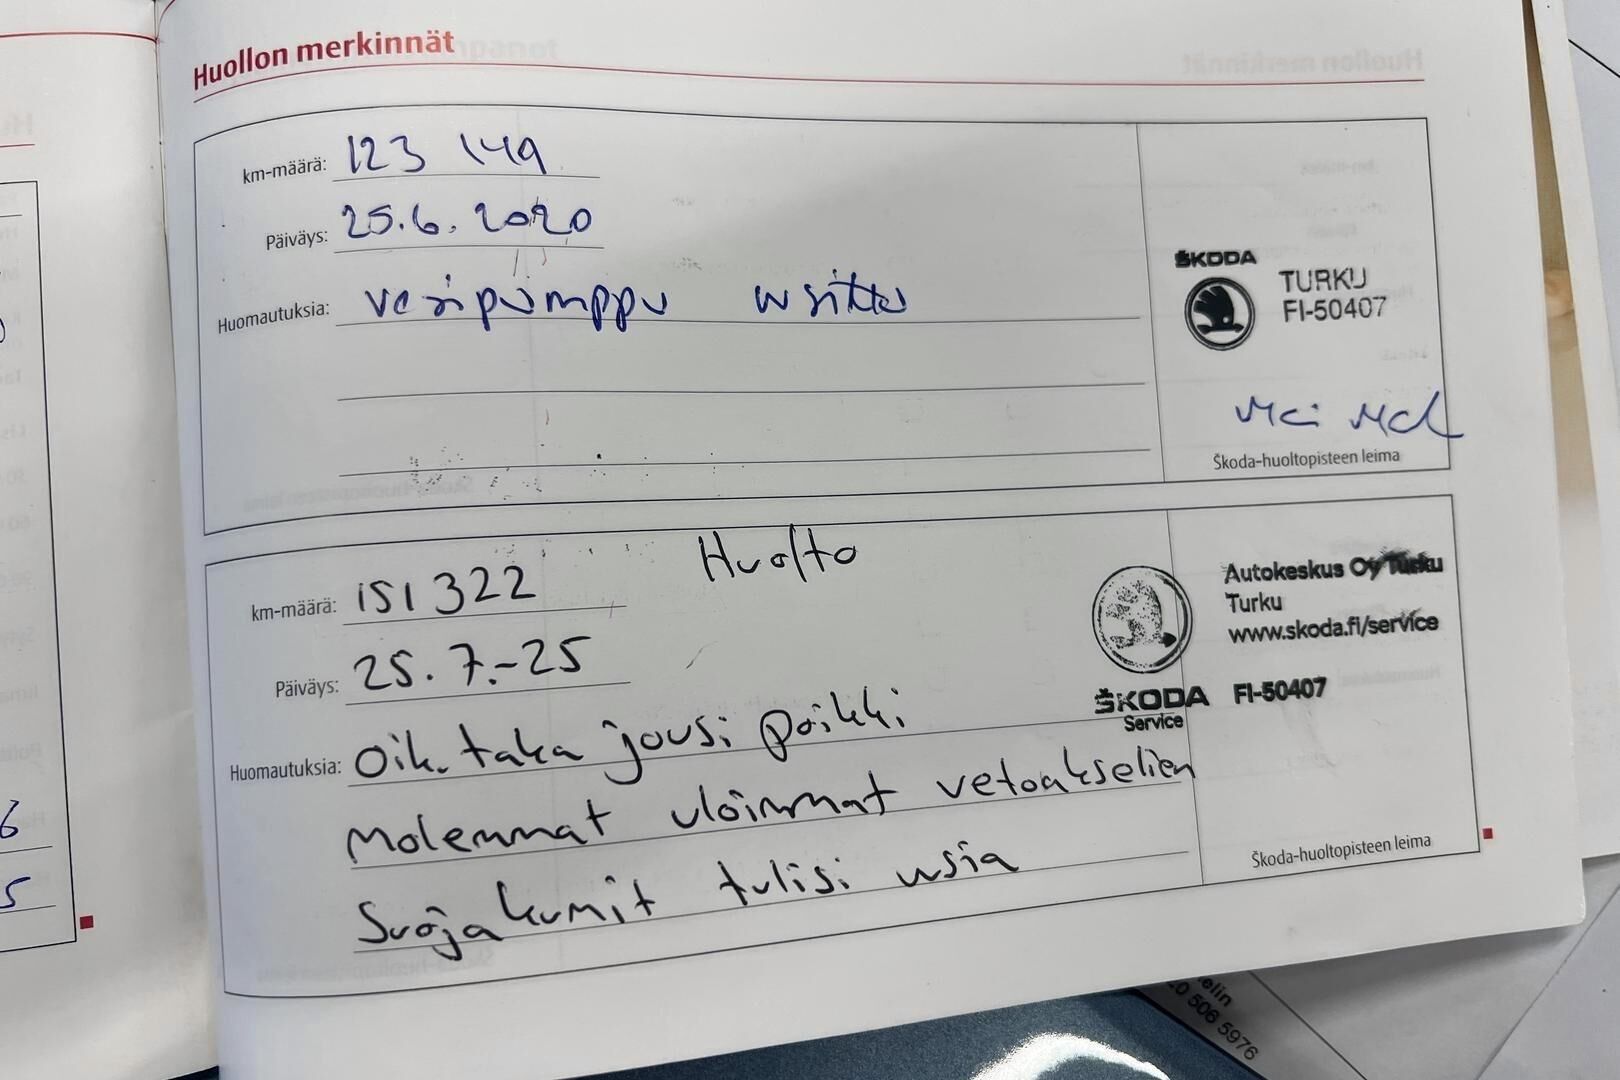 Huollon merkinnät
km-määrä: 123 149
Päiväys: 25.6.2020
Huomautuksia: vesipumppu usittu
ŠKODA
TURKU
FI-50407
Škoda-huoltopisteen leima
Huolto
km-määrä: 151 322
Päiväys: 25.7.-25
Huomautuksia: Oik. taka jousi poikki
Molemmat uloimmat vetoakselien
Suojakumit tulisi usia
Autokeskus Oy Turku
Turku
www.skoda.fi/service
ŠKODA FI-50407
Service
Škoda-huoltopisteen leima
6
5
elin
0 506 5976